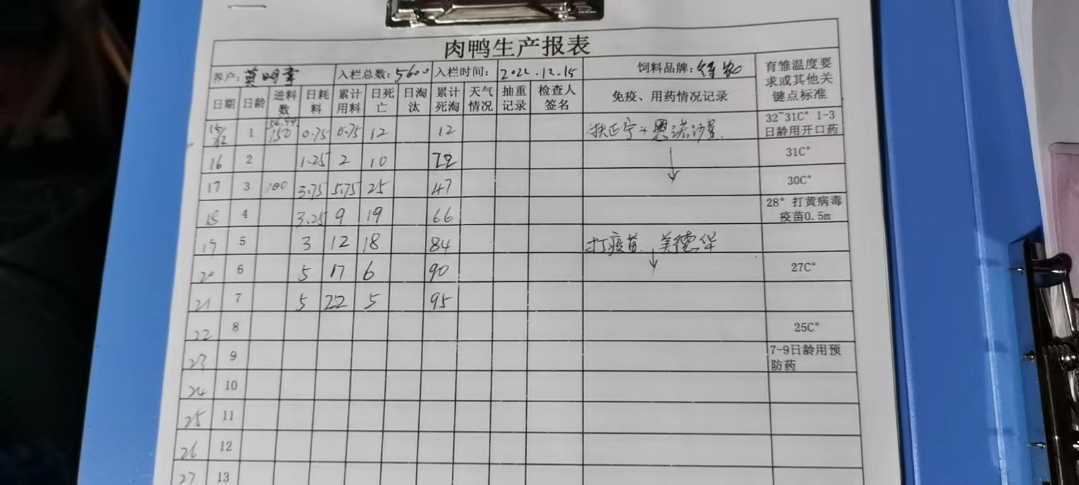 肉鸭生产报表
养户: 入栏总数:5600 入栏时间: 2022.12.15 饲料品牌: 育雏温度要求或其他关键点标准
日期 日龄 进料数 日耗料 累计用料 日死亡 日淘汰 累计死淘 天气情况 抽重记录 检查人签名 免疫、用药情况记录
1 150 0.75 0.75 12 12 32~31C° 1-3日龄用开口药
16 2 1.25 2 10 31C°
17 3 100 3.75 5.75 25 47 30C°
18 4 3.25 9 19 66 28° 打黄病毒疫苗0.5m
19 5 3 12 18 84 打疫苗
20 6 5 17 6 90 27C°
21 7 5 22 5 95
22 8 25C°
23 9 7-9日龄用预防药
24 10
25 11
26 12
27 13